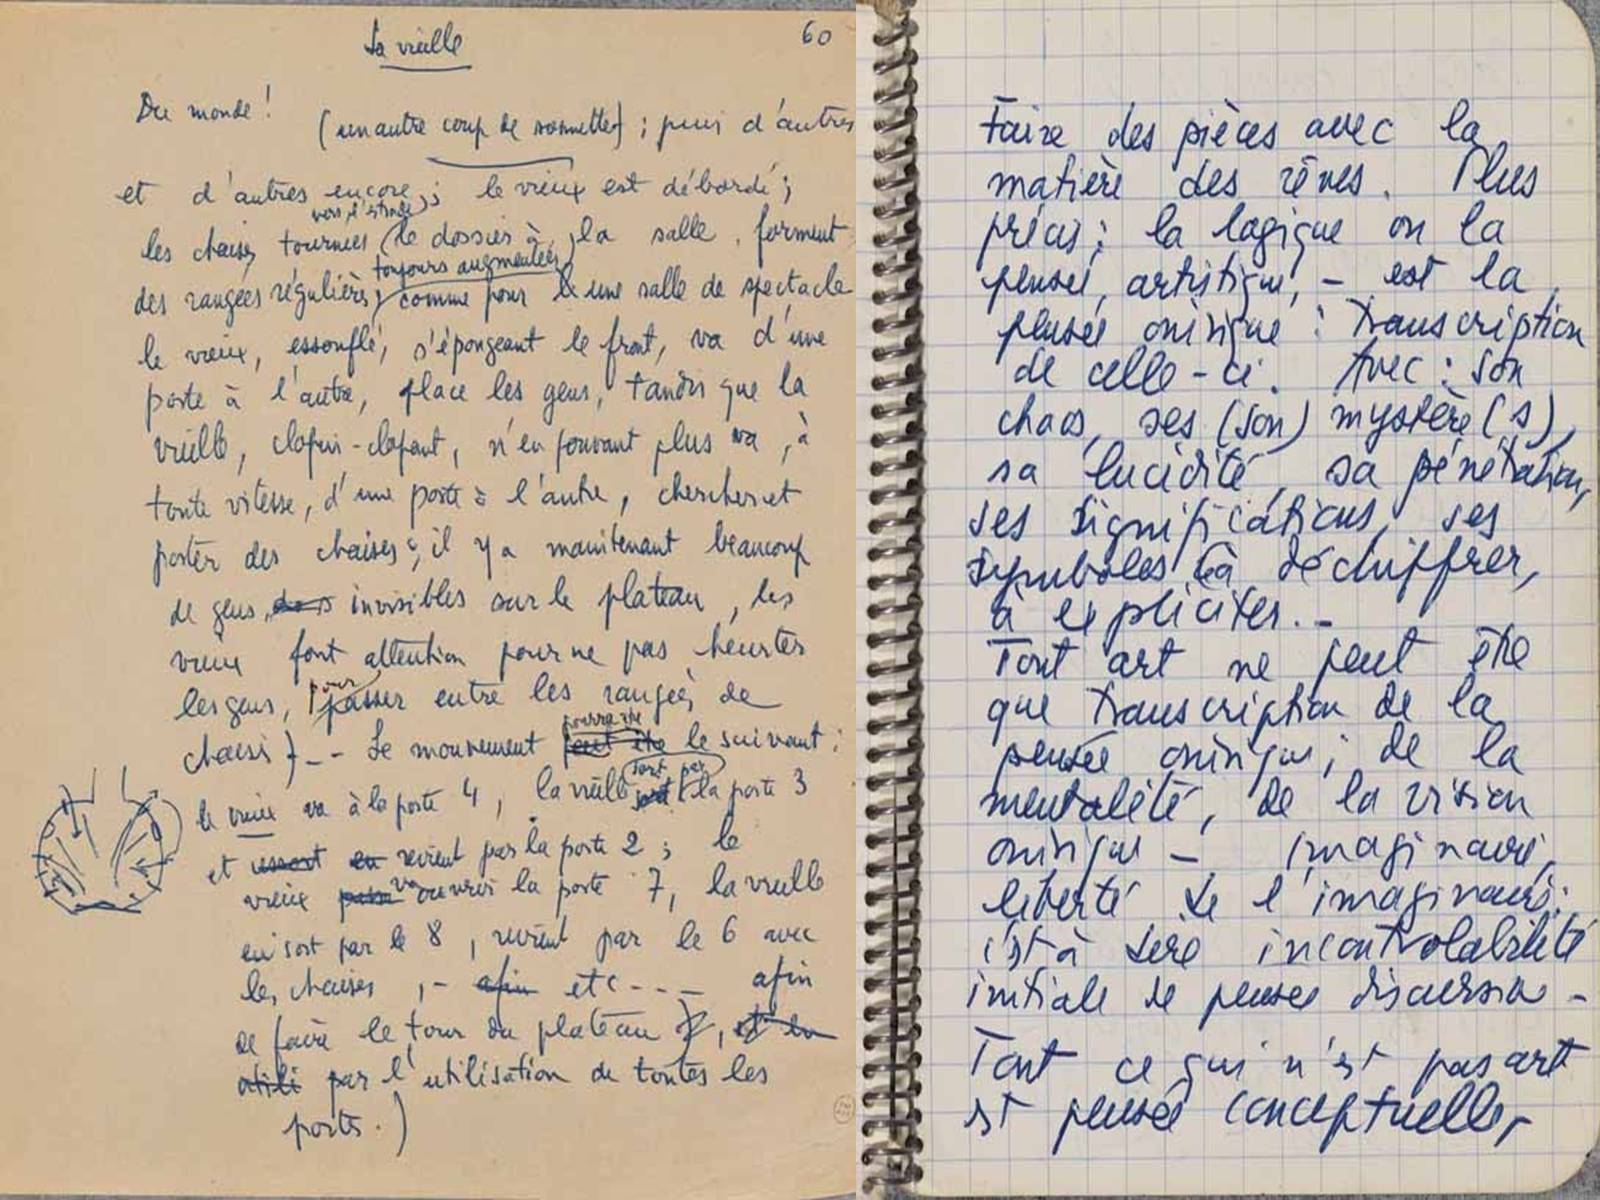 La vieille
60
Du monde!
(un autre coup de sonnette) ; puis d'autres
et d'autres encore ; le vieux est débordé ;
vers l'estrade
les chaises, tournées (le dossier à la salle, forment
toujours augmentées,
des rangées régulières, comme pour une salle de spectacle
le vieux, essoufflé, s'épongeant le front, va d'une
porte à l'autre, place les gens, tandis que la
vieille, clopin-clopant, n'en pouvant plus va, à
toute vitesse, d'une porte à l'autre, chercher et
porter des chaises ; il y a maintenant beaucoup
de gens, dans invisibles sur le plateau, les
vieux font attention pour ne pas heurter
pour
les gens, passer entre les rangées de
pourra être
chaises) - - Le mouvement peut être le suivant :
sort par
le vieux va à la porte 4, la vieille sort la porte 3
et ressort en revient par la porte 2 ; le
va
vieux passe ouvrir la porte 7, la vieille
en sort par le 8, revient par le 6 avec
les chaises, - afin etc - - - afin
de faire le tour du plateau, et la
utili par l'utilisation de toutes les
portes.)
Faire des pièces avec la
matière des rêves. Plus
précis : la logique ou la
pensée, artistique, - est la
pensée onirique : Transcription
de celle-ci. Avec : son
chaos, ses (son) mystère(s),
sa lucidité, sa pénétration,
ses significations, ses
symboles à déchiffrer,
à expliciter. -
Tout art ne peut être
que Transcription de la
pensée onirique ; de la
mentalité, de la vision
onirique - imaginaire,
liberté de l'imaginaire :
c'est à dire incontrolabilité
initiale de pensée discursive -
Tout ce qui n'est pas art
est pensée conceptuelle,